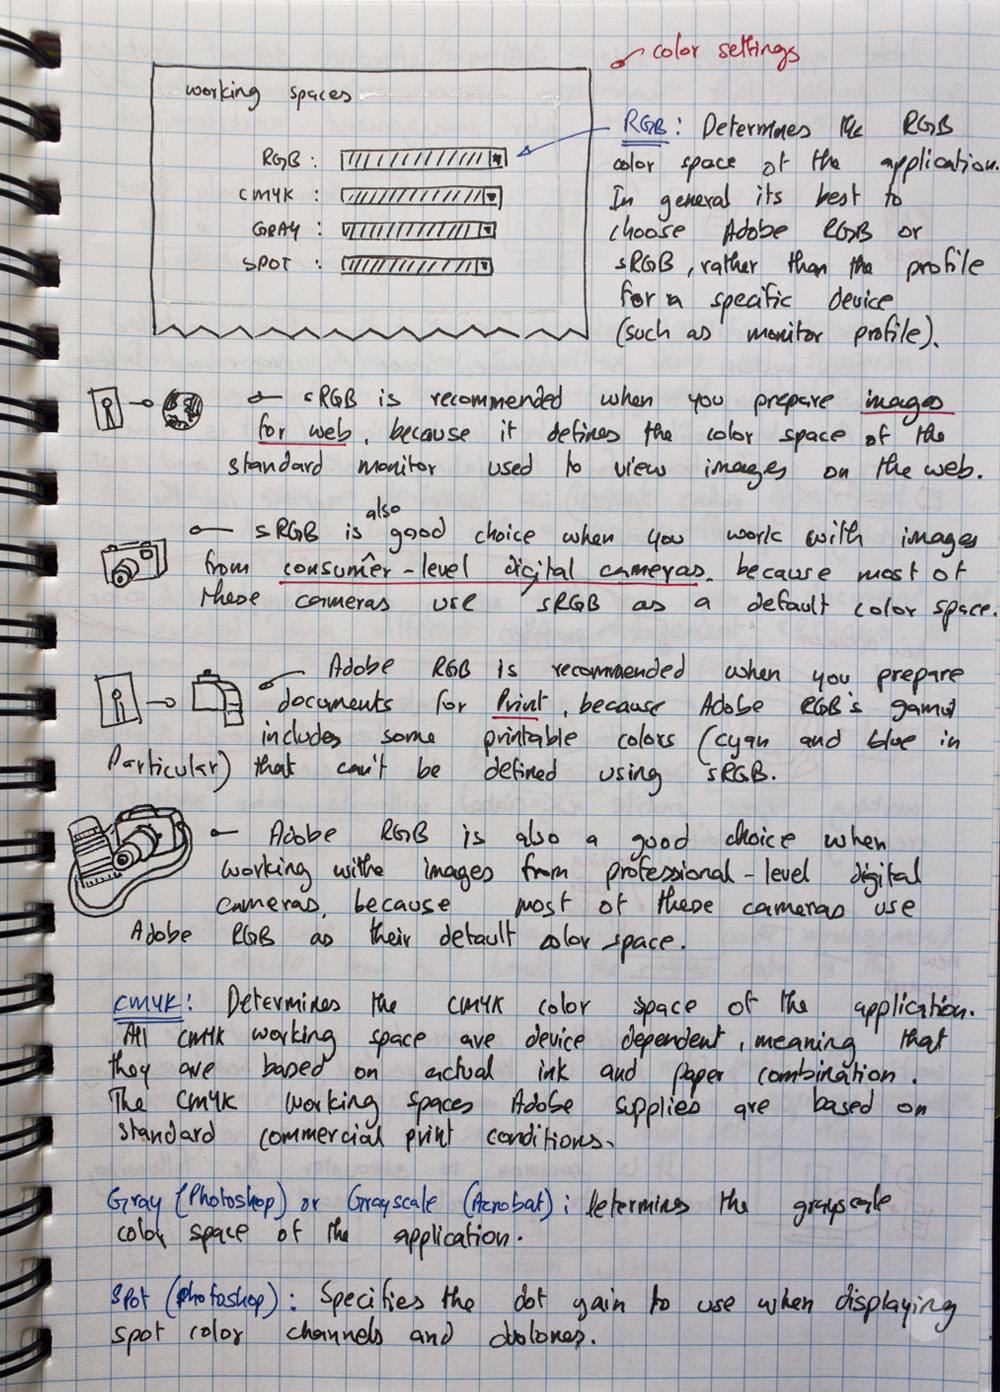 color settings
working spaces
RGB :
CMYK :
GRAY :
SPOT :
RGB : Determines the RGB
color space of the application.
In general its best to
choose Adobe RGB or
sRGB, rather than the profile
for a specific device
(such as monitor profile).
sRGB is recommended when you prepare images
for web, because it defines the color space of the
standard monitor used to view images on the web.
sRGB is also good choice when you work with images
from consumer-level digital cameras, because most of
these cameras use sRGB as a default color space.
Adobe RGB is recommended when you prepare
documents for Print, because Adobe RGB's gamut
includes some printable colors (cyan and blue in
Particular) that can't be defined using sRGB.
Adobe RGB is also a good choice when
working withe images from professional-level digital
cameras, because most of these cameras use
Adobe RGB as their default color space.
CMYK : Determines the CMYK color space of the application.
All CMYK working space are device dependent, meaning that
they are based on actual ink and paper combination.
The CMYK working spaces Adobe supplies are based on
standard commercial print conditions.
Gray (Photoshop) or Grayscale (Acrobat) : Determines the grayscale
color space of the application.
Spot (photoshop) : Specifies the dot gain to use when displaying
spot color channels and duotones.